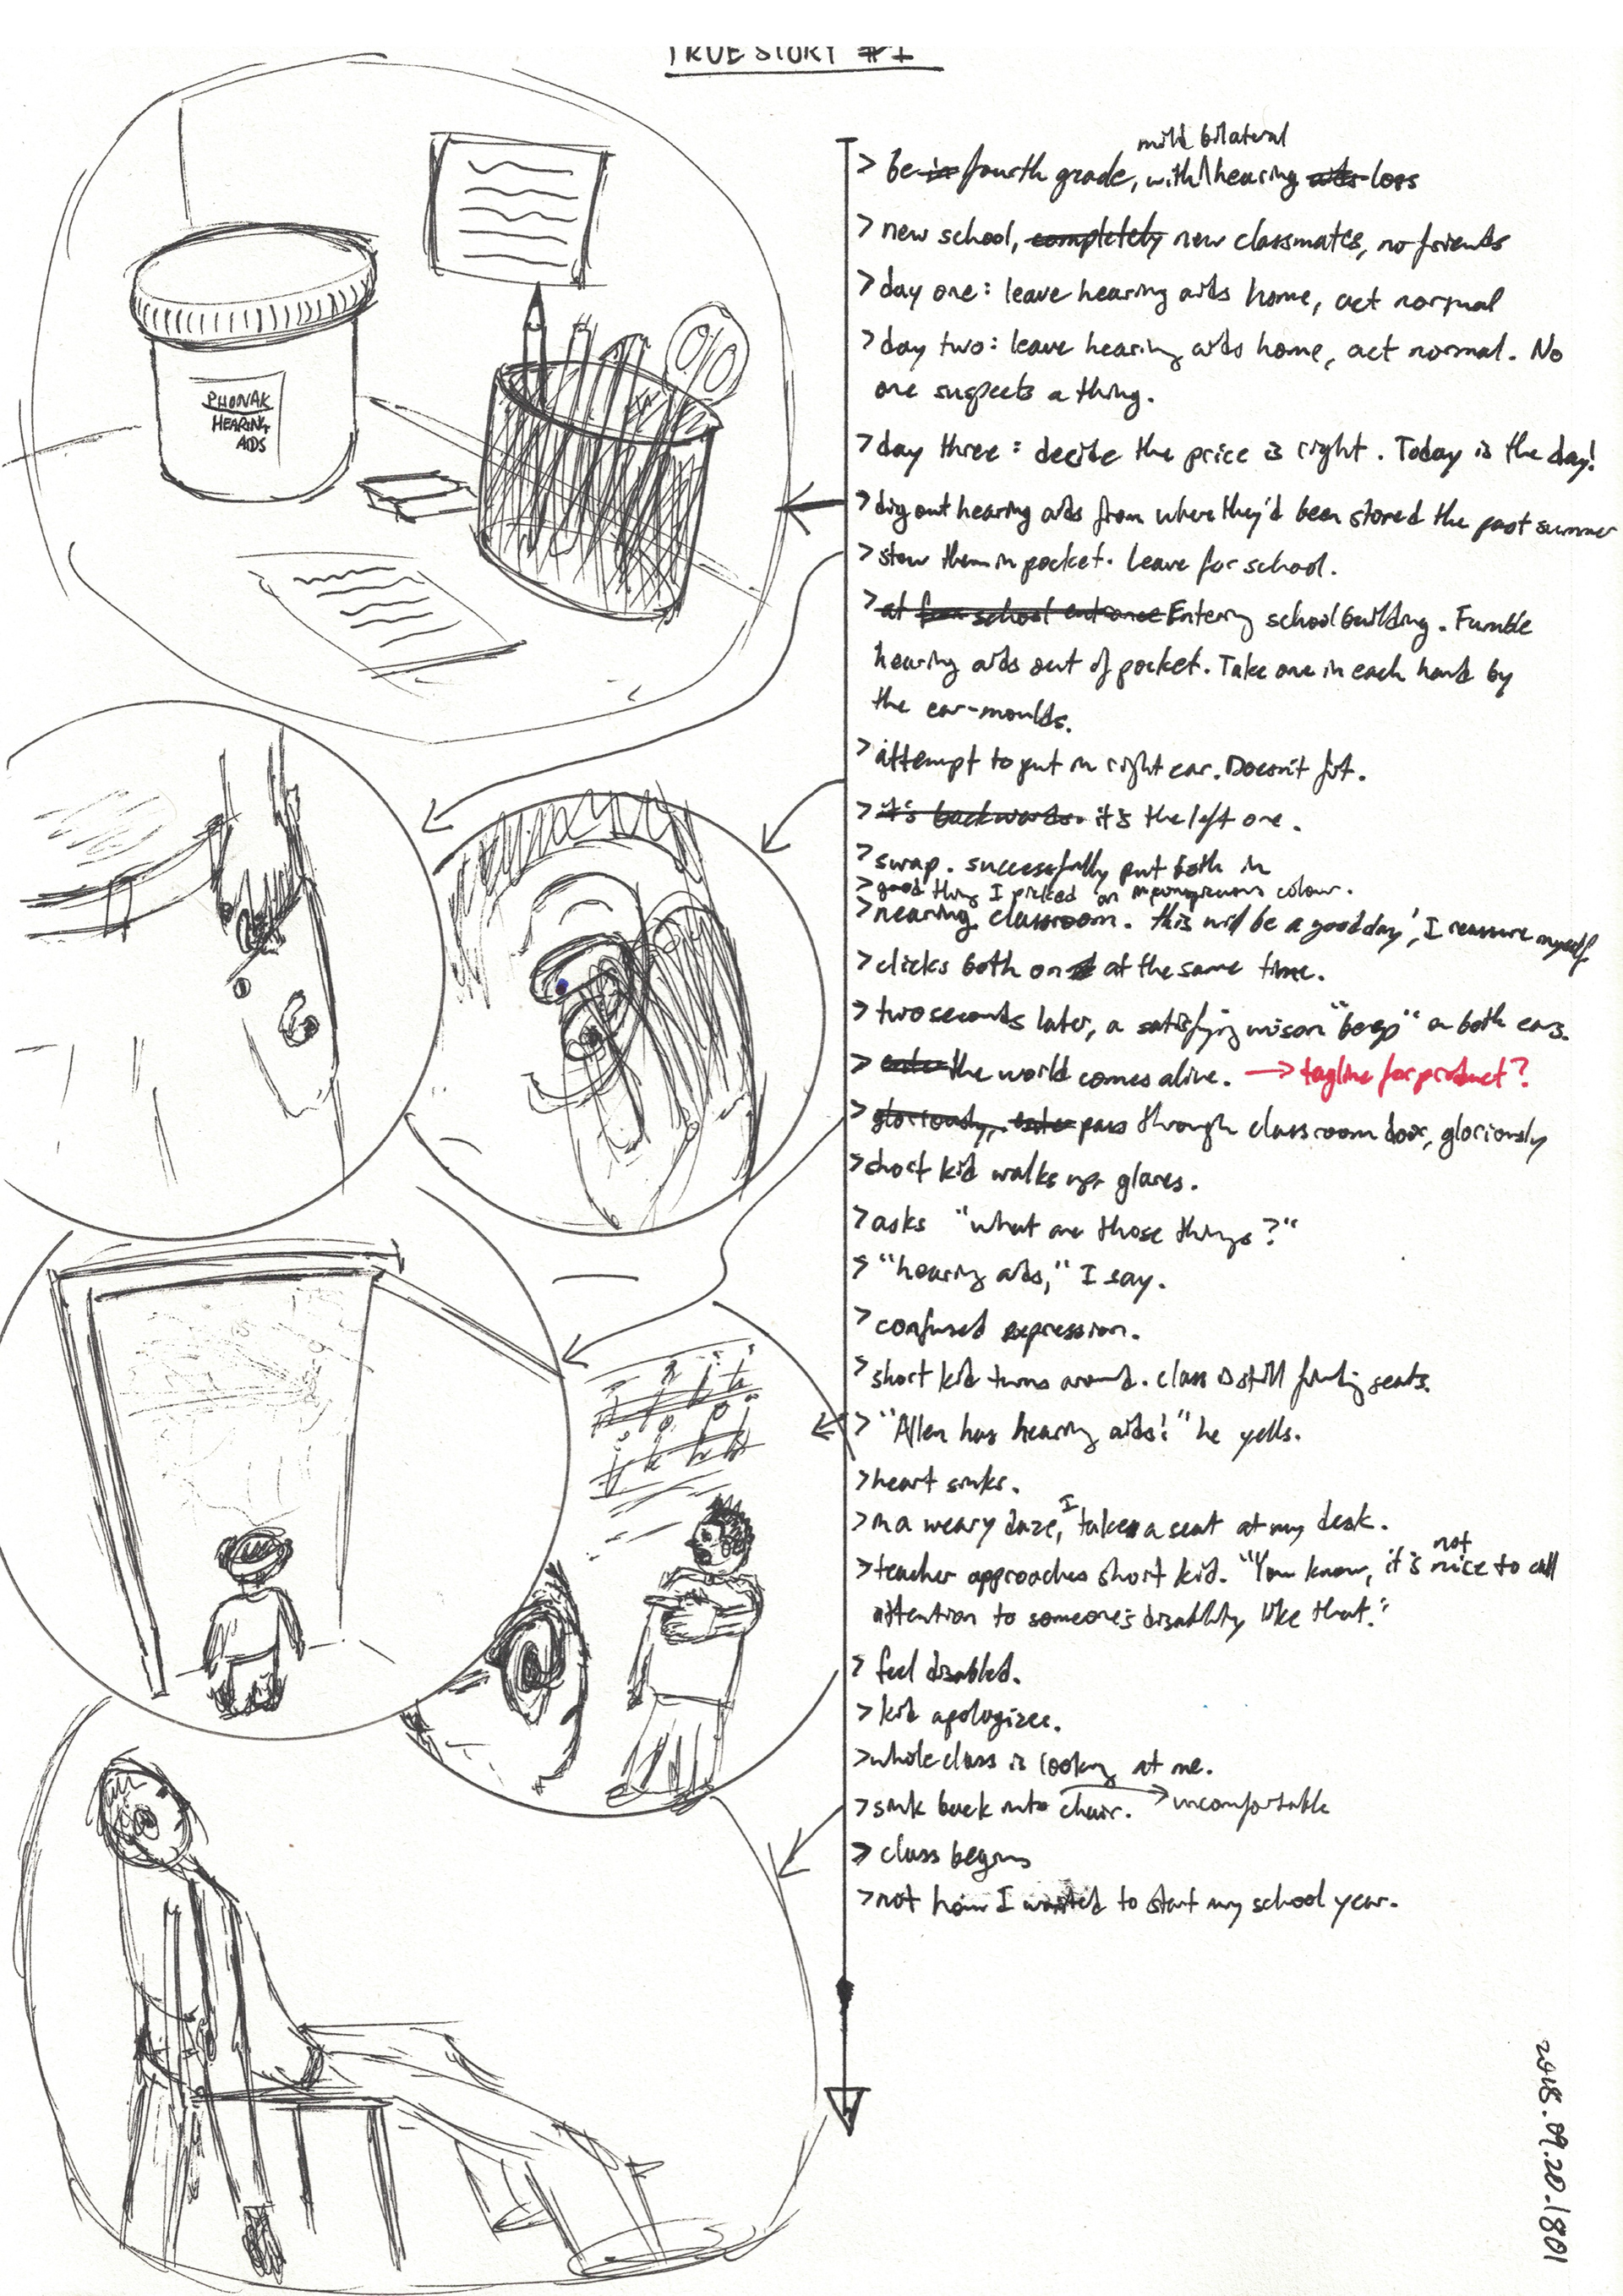 TRUE STORY #1
PHONAK
HEARING
AIDS
mild bilateral
> be in fourth grade, with hearing aids loss
> new school, completely new classmates, no friends
> day one: leave hearing aids home, act normal
> day two: leave hearing aids home, act normal. No
one suspects a thing.
> day three: decide the price is right. Today is the day!
> dig out hearing aids from where they'd been stored the past summer
> stow them in pocket. Leave for school.
> at school entrance Entering school building. Fumble
hearing aids out of pocket. Take one in each hand by
the ear-moulds.
> attempt to put in right ear. Doesn't fit.
> it's backwards. it's the left one.
> swap. successfully put both in
> good thing I picked an inconspicuous colour.
> nearing classroom. 'this will be a good day', I reassure myself.
> clicks both on at the same time.
> two seconds later, a satisfying unison "beep" in both ears.
> enter the world comes alive. → tagline for product?
> gloriously, enter pass through classroom door, gloriously
> short kid walks up, glares.
> asks "what are those things?"
> "hearing aids," I say.
> confused expression.
> short kid turns around. class is still finding seats.
> "Allen has hearing aids!" he yells.
> heart sinks.
> in a weary daze, I take a seat at my desk.
> teacher approaches short kid. "You know, it's not nice to call
attention to someone's disability like that."
> feel disabled.
> kid apologizes.
> whole class is looking at me.
> sink back into chair. → uncomfortable
> class begins
> not how I wanted to start my school year.
2018.09.20.1801